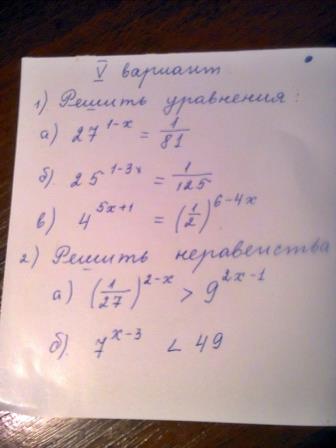 V вариант
1) Решить уравнения:
а) 27^{1-x} = \frac{1}{81}
б) 25^{1-3x} = \frac{1}{125}
в) 4^{5x+1} = (\frac{1}{2})^{6-4x}
2) Решить неравенства
а) (\frac{1}{27})^{2-x} > 9^{2x-1}
б). 7^{x-3} < 49